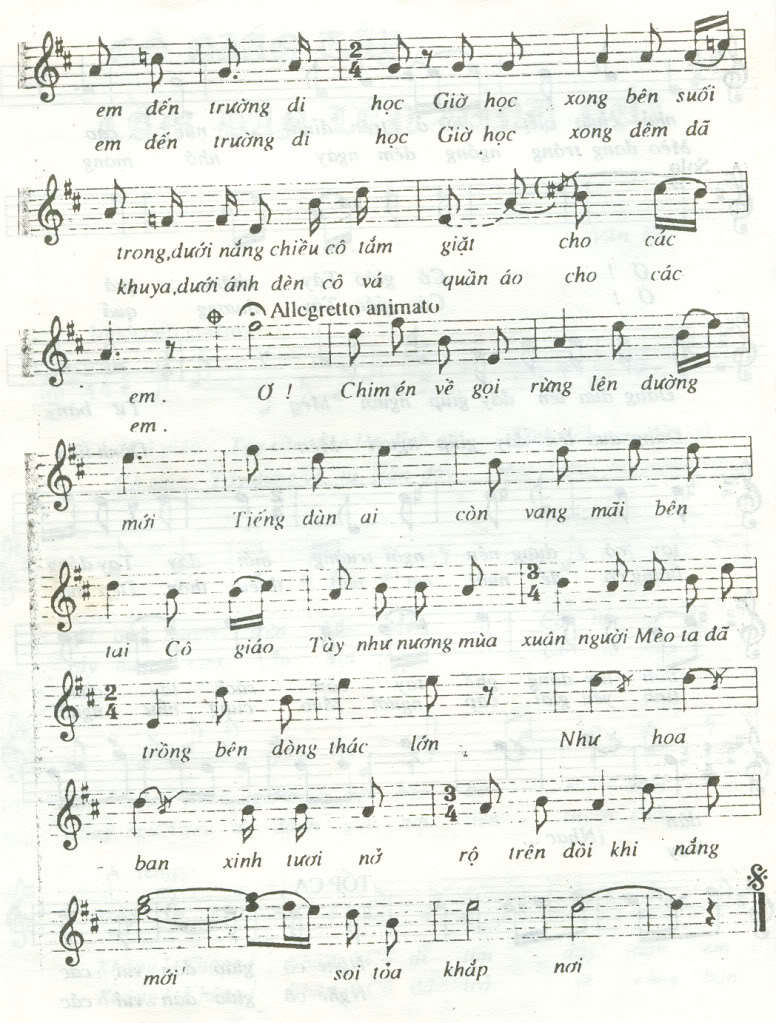 em đến trường đi học Giờ học xong bên suối
em đến trường đi học Giờ học xong đêm đã
trong, dưới nắng chiều cô tắm giặt cho các
khuya, dưới ánh đèn cô vá quần áo cho các
Allegretto animato
em . Ơ ! Chim én về gọi rừng lên đường
em .
mới Tiếng đàn ai còn vang mãi bên
tai Cô giáo Tày như nương mùa xuân người Mèo ta đã
trồng bên dòng thác lớn . Như hoa
ban xinh tươi nở rộ trên đồi khi nắng
mới soi tỏa khắp nơi